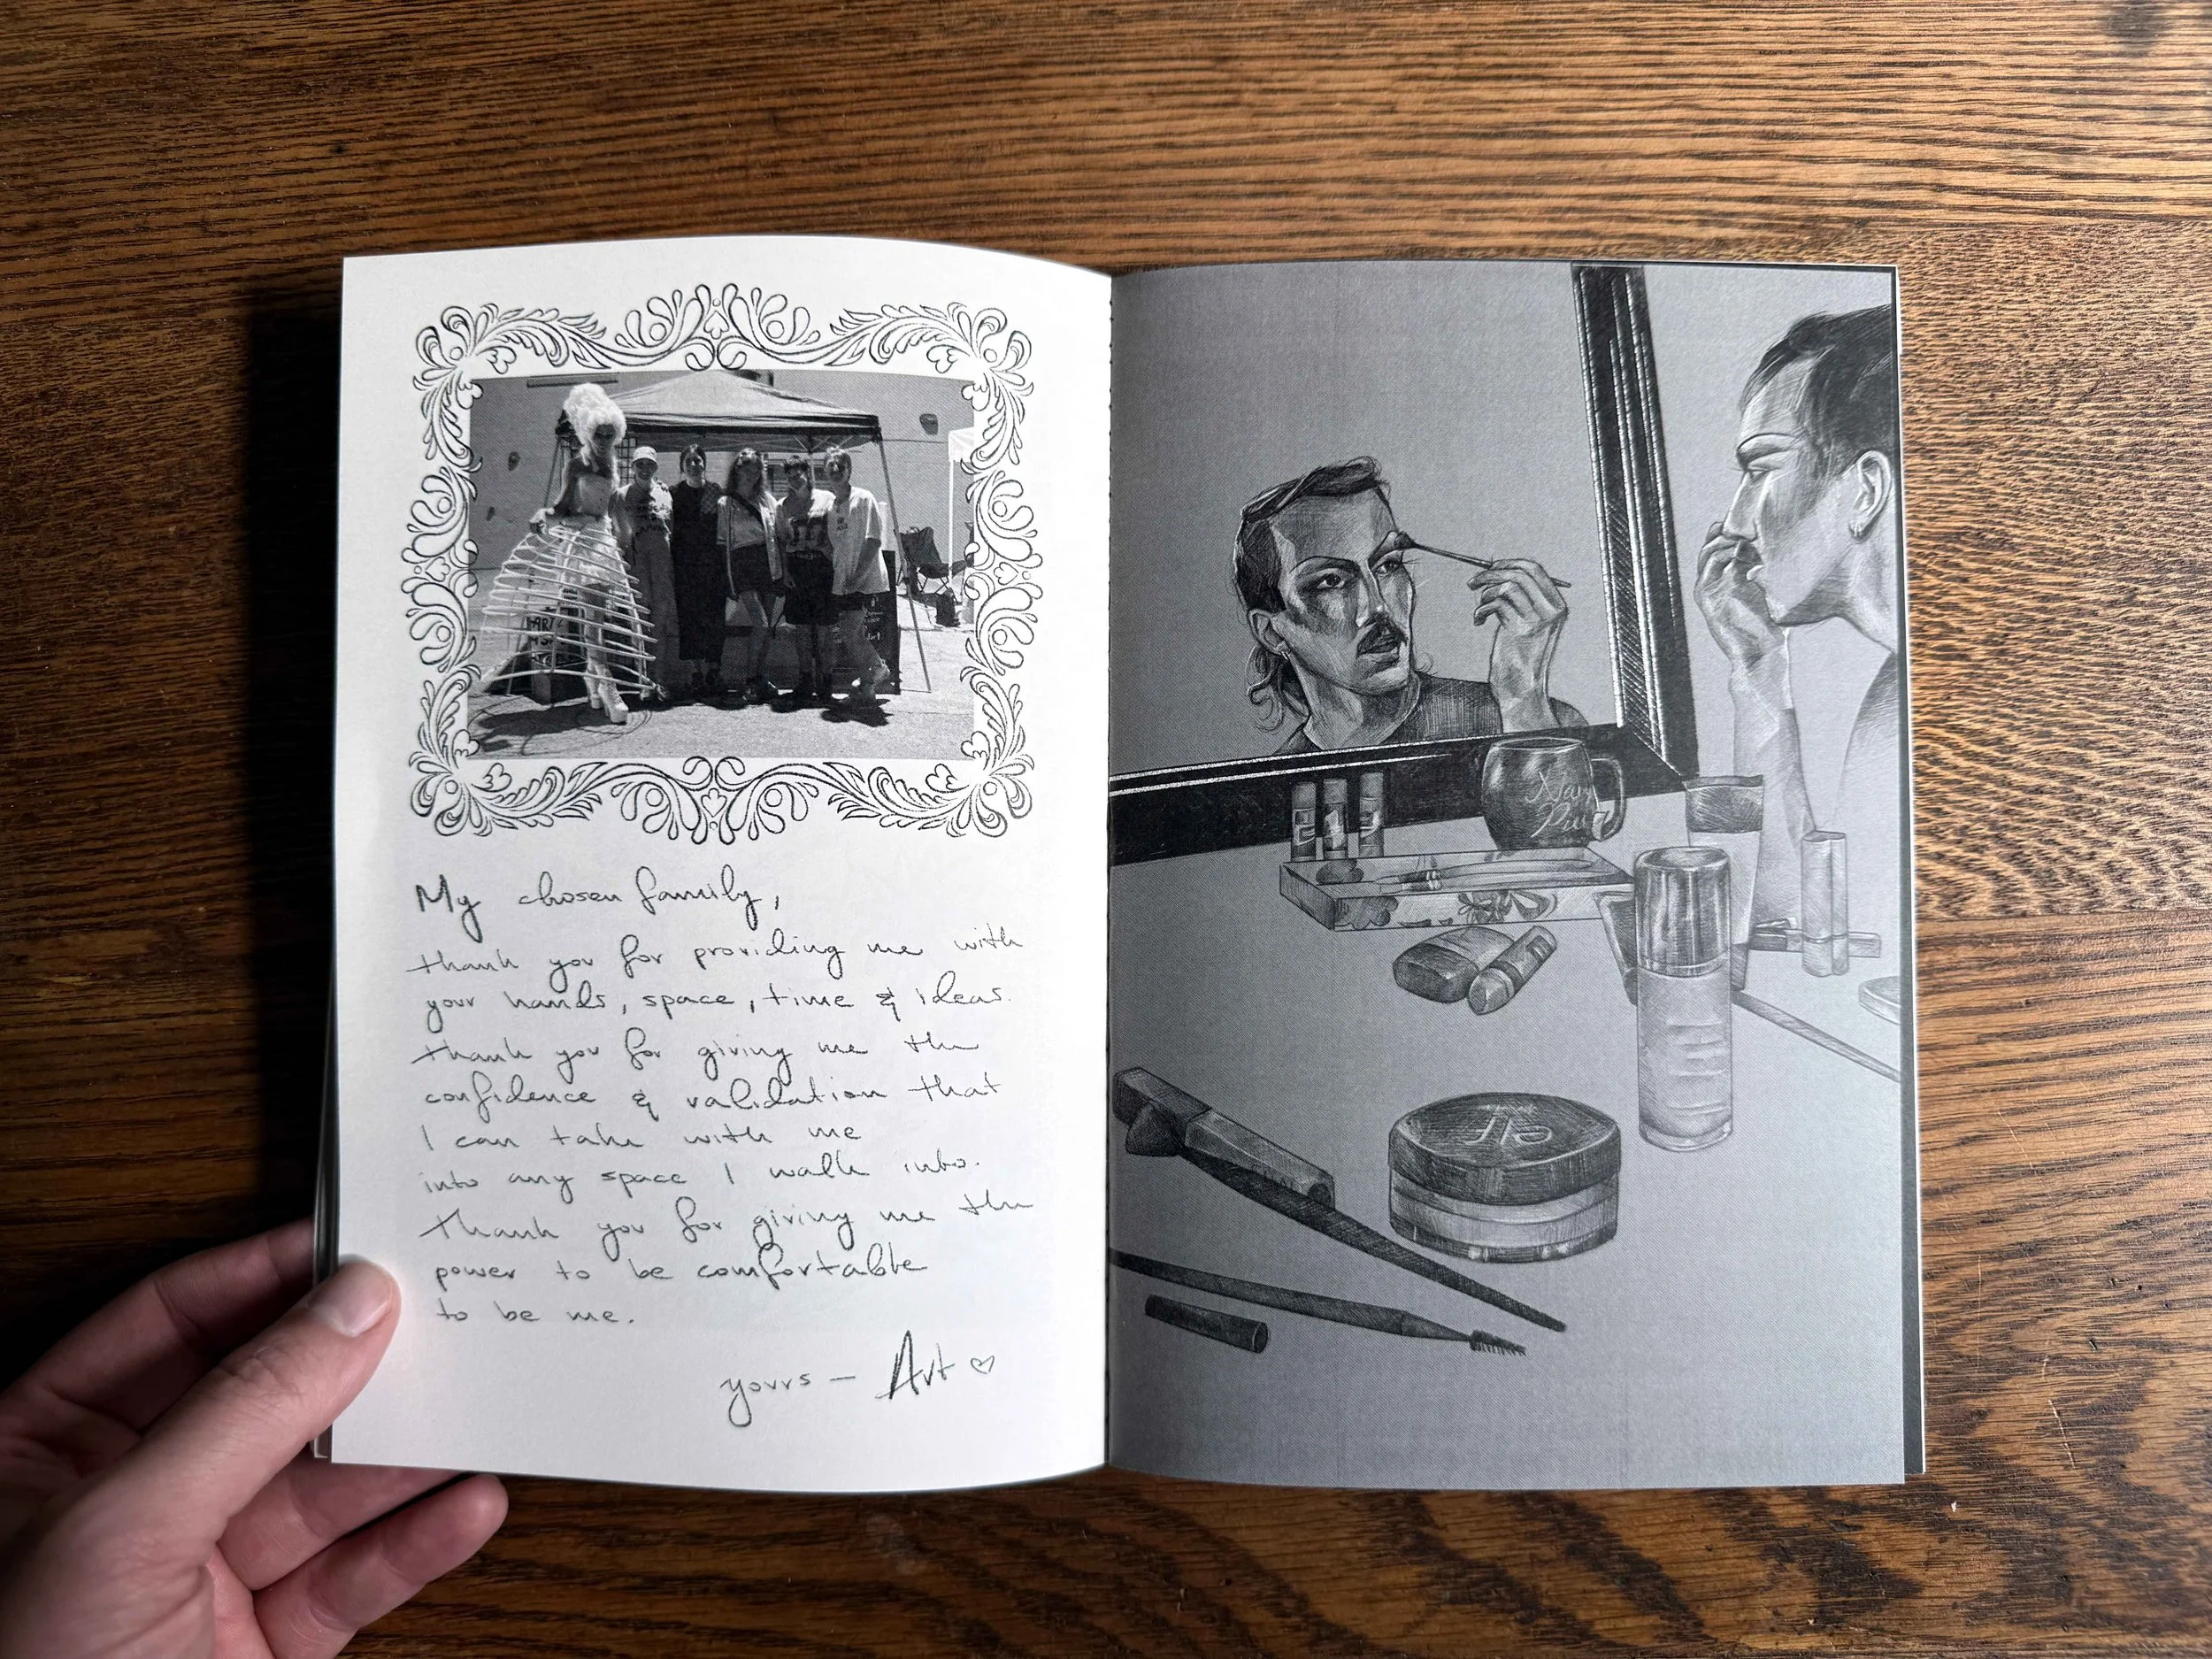 My chosen family,
thank you for providing me with
your hands, space, time & ideas.
thank you for giving me the
confidence & validation that
I can take with me
into any space I walk into.
Thank you for giving me the
power to be comfortable
to be me.
yours — Art ♡